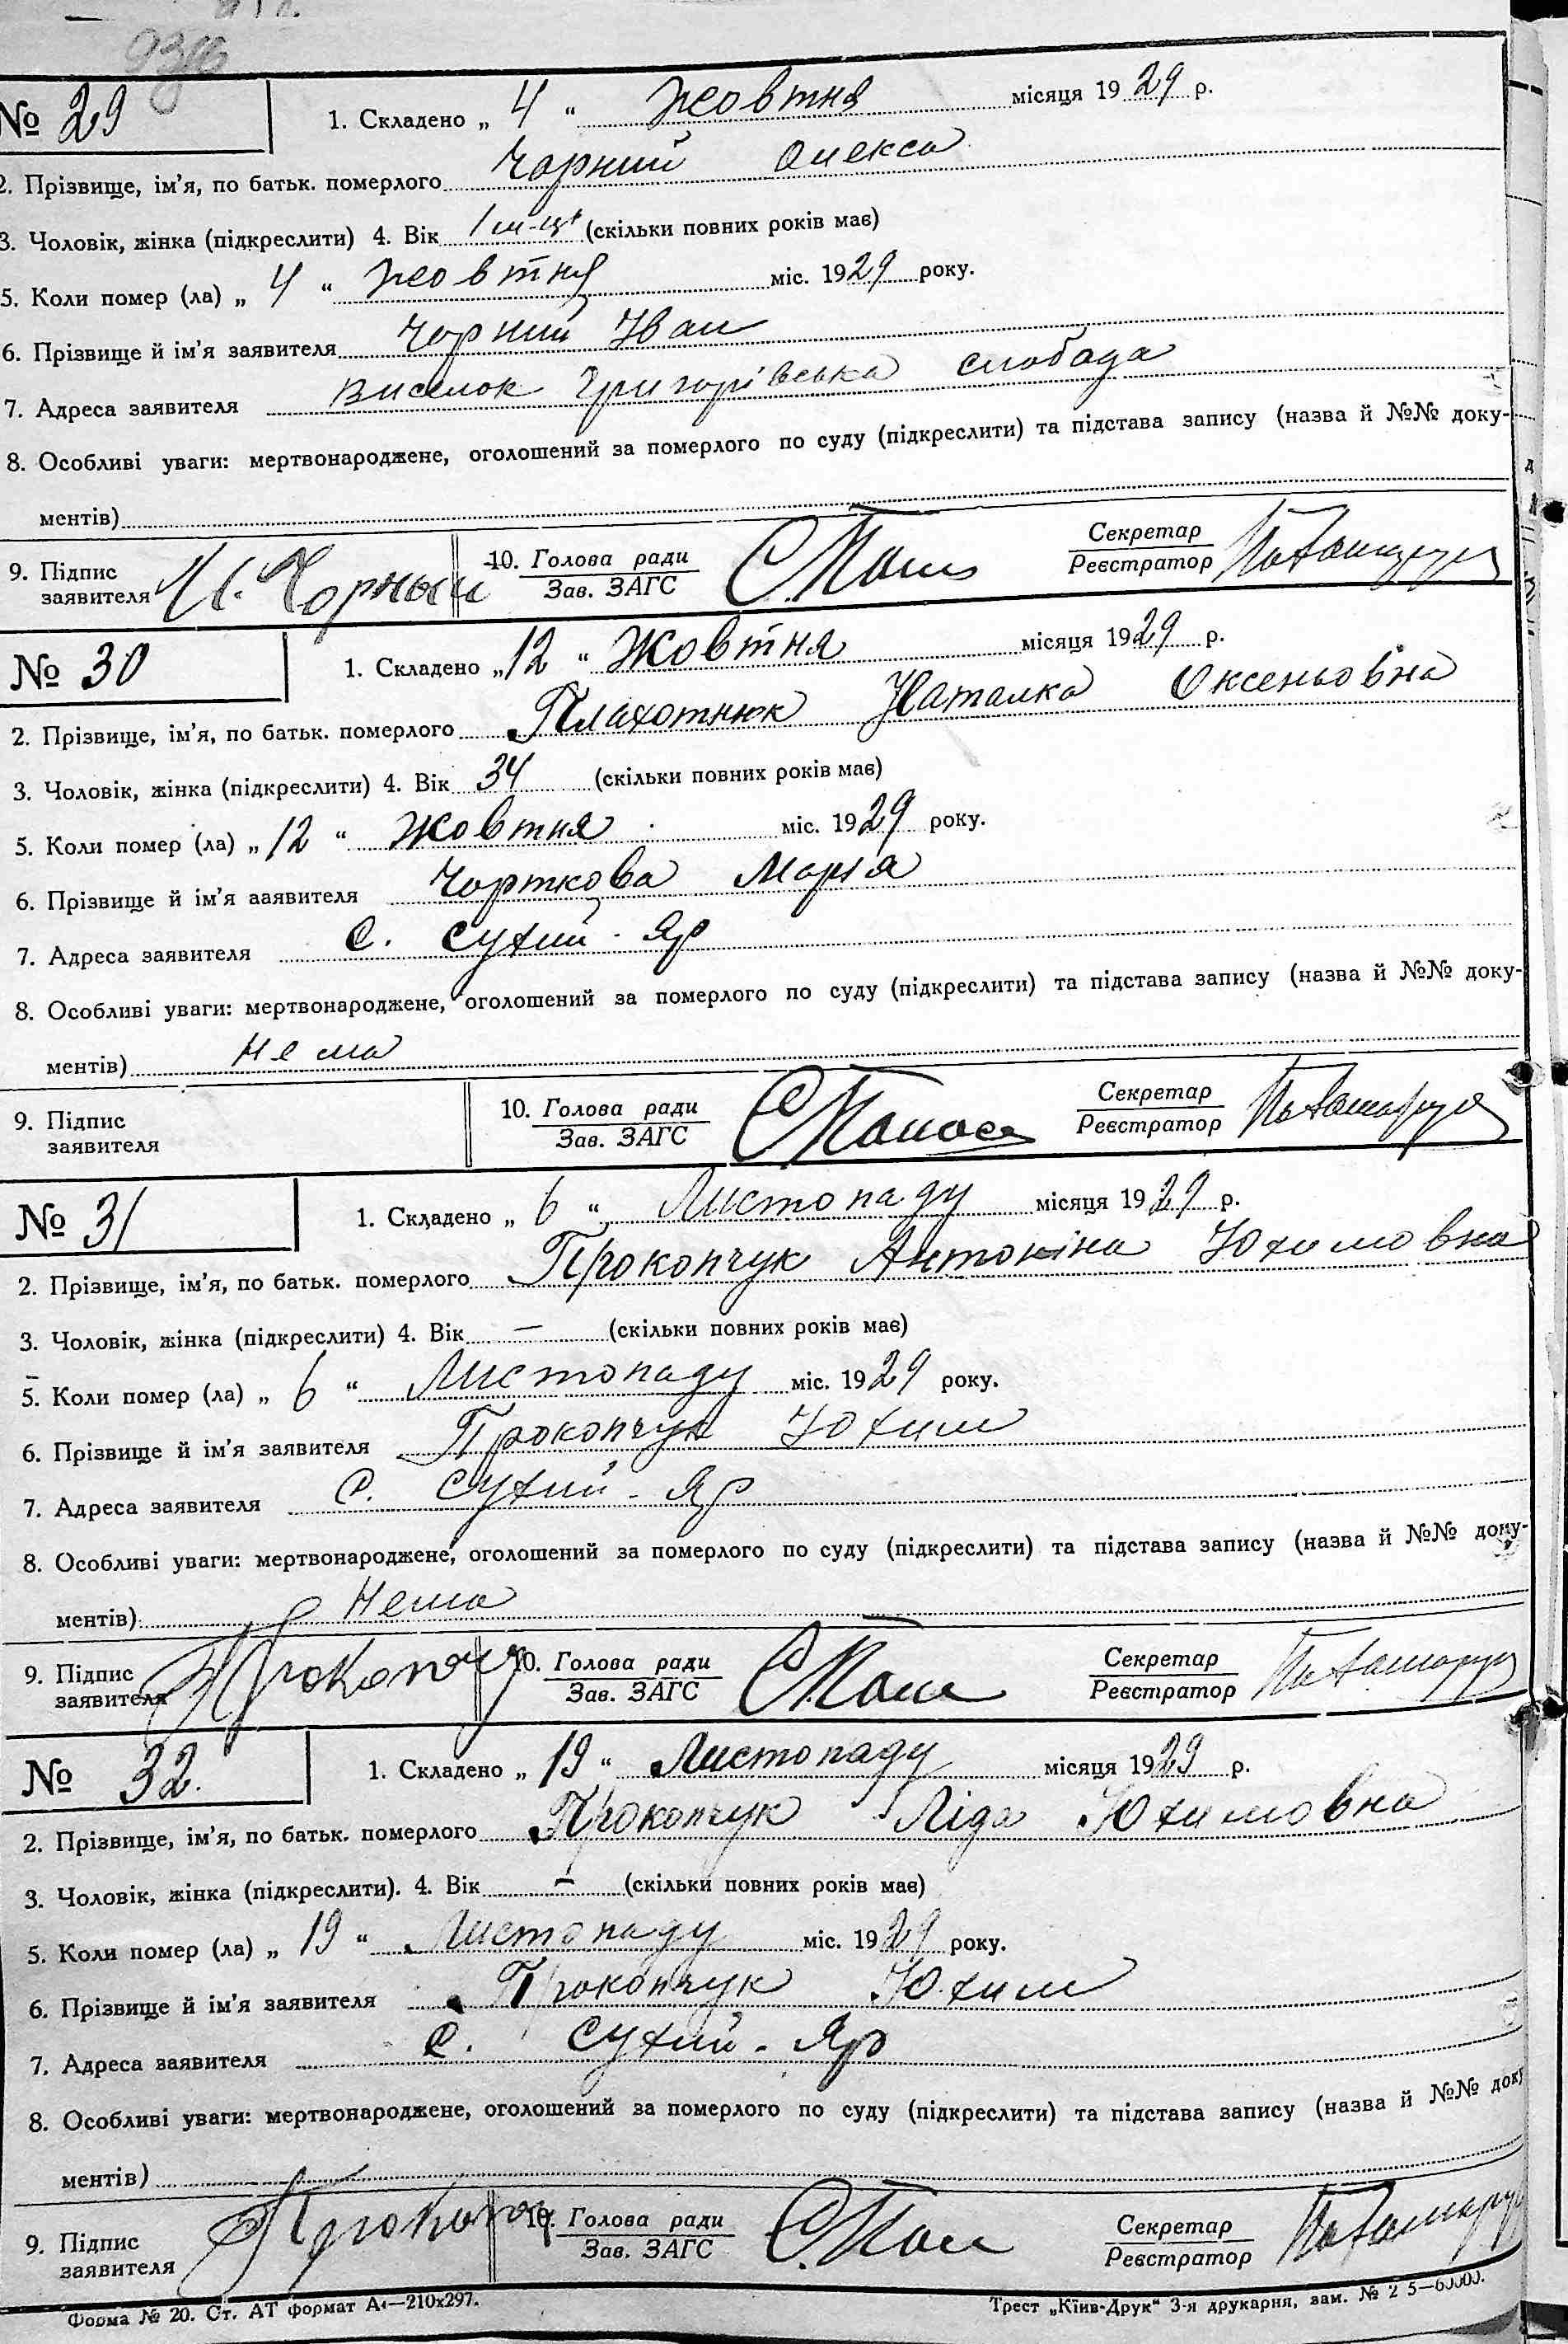 № 29
1. Складено „ 4 “ жовтня місяця 1929 р.
2. Прізвище, ім’я, по батьк. померлого Чорний Олекса
3. Чоловік, жінка (підкреслити) 4. Вік 1 м-ць (скільки повних років має)
5. Коли помер (ла) „ 4 “ жовтня міс. 1929 року.
6. Прізвище й ім’я заявителя Чорний Іван
7. Адреса заявителя Виселок Григорівська слобода
8. Особливі уваги: мертвонароджене, оголошений за померлого по суду (підкреслити) та підстава запису (назва й №№ доку-
ментів)
9. Підпис заявителя И. Чорный 10. Голова ради Зав. ЗАГС Секретар Реєстратор
№ 30
1. Складено „ 12 “ Жовтня місяця 1929 р.
2. Прізвище, ім’я, по батьк. померлого Плахотнюк Наталка Оксеньовна
3. Чоловік, жінка (підкреслити) 4. Вік 34 (скільки повних років має)
5. Коли помер (ла) „ 12 “ жовтня міс. 1929 року.
6. Прізвище й ім’я ааявителя Чорткова Марія
7. Адреса заявителя с. Сухий-Яр
8. Особливі уваги: мертвонароджене, оголошений за померлого по суду (підкреслити) та підстава запису (назва й №№ доку-
ментів) Нема
9. Підпис заявителя 10. Голова ради Зав. ЗАГС Секретар Реєстратор
№ 31
1. Складено „ 6 “ Листопаду місяця 1929 р.
2. Прізвище, ім’я, по батьк. померлого Прокопчук Антоніна Юхимовна
3. Чоловік, жінка (підкреслити) 4. Вік — (скільки повних років має)
5. Коли помер (ла) „ 6 “ Листопаду міс. 1929 року.
6. Прізвище й ім’я заявителя Прокопчук Юхим
7. Адреса заявителя с. Сухий-Яр
8. Особливі уваги: мертвонароджене, оголошений за померлого по суду (підкреслити) та підстава запису (назва й №№ доку-
ментів) Нема
9. Підпис заявителя Прокопчу 10. Голова ради Зав. ЗАГС Секретар Реєстратор
№ 32.
1. Складено „ 19 “ Листопаду місяця 1929 р.
2. Прізвище, ім’я, по батьк. померлого Прокопчук Ліда Юхимовна
3. Чоловік, жінка (підкреслити). 4. Вік — (скільки повних років має)
5. Коли помер (ла) „ 19 “ Листопаду міс. 1929 року.
6. Прізвище й ім’я заявителя Прокопчук Юхим
7. Адреса заявителя с. Сухий-Яр
8. Особливі уваги: мертвонароджене, оголошений за померлого по суду (підкреслити) та підстава запису (назва й №№ доку
ментів)
9. Підпис заявителя Прокопч 10. Голова ради Зав. ЗАГС Секретар Реєстратор
Форма № 20. Ст. АТ формат А4—210х297.
Трест „Київ-Друк“ 3-я друкарня, зам. №